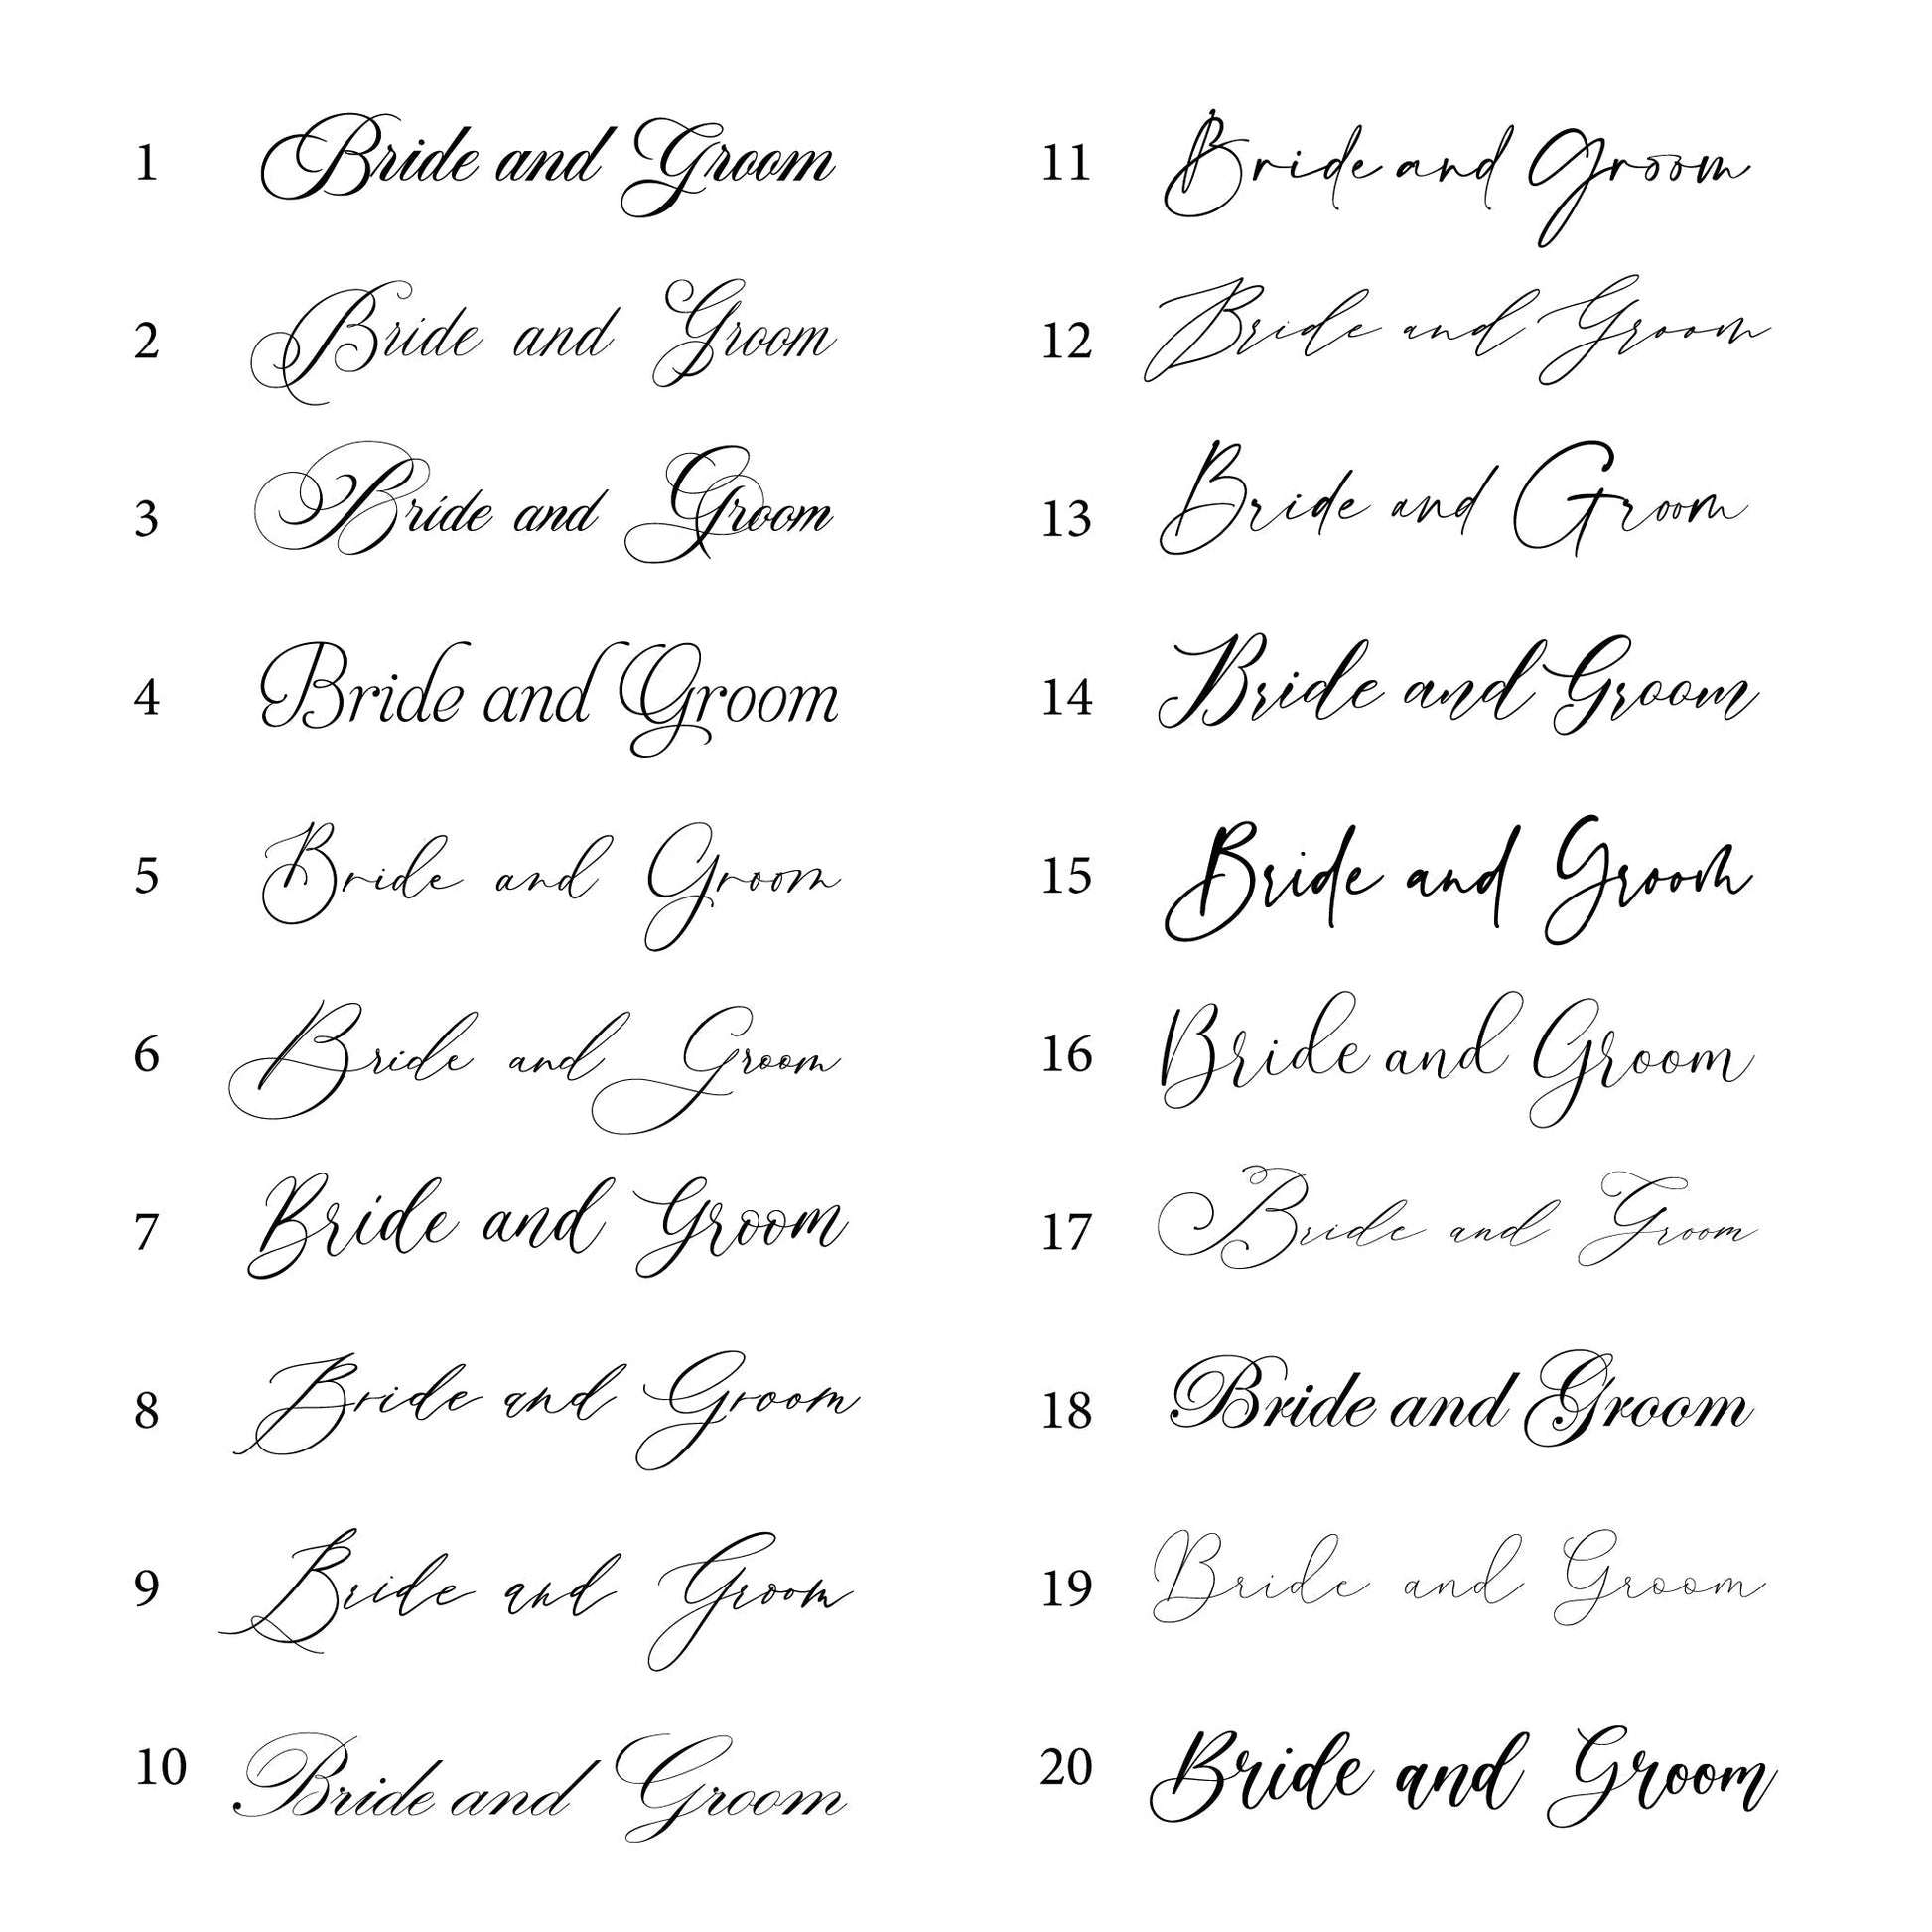 1 Bride and Groom
2 Bride and Groom
3 Bride and Groom
4 Bride and Groom
5 Bride and Groom
6 Bride and Groom
7 Bride and Groom
8 Bride and Groom
9 Bride and Groom
10 Bride and Groom
11 Bride and Groom
12 Bride and Groom
13 Bride and Groom
14 Bride and Groom
15 Bride and Groom
16 Bride and Groom
17 Bride and Groom
18 Bride and Groom
19 Bride and Groom
20 Bride and Groom